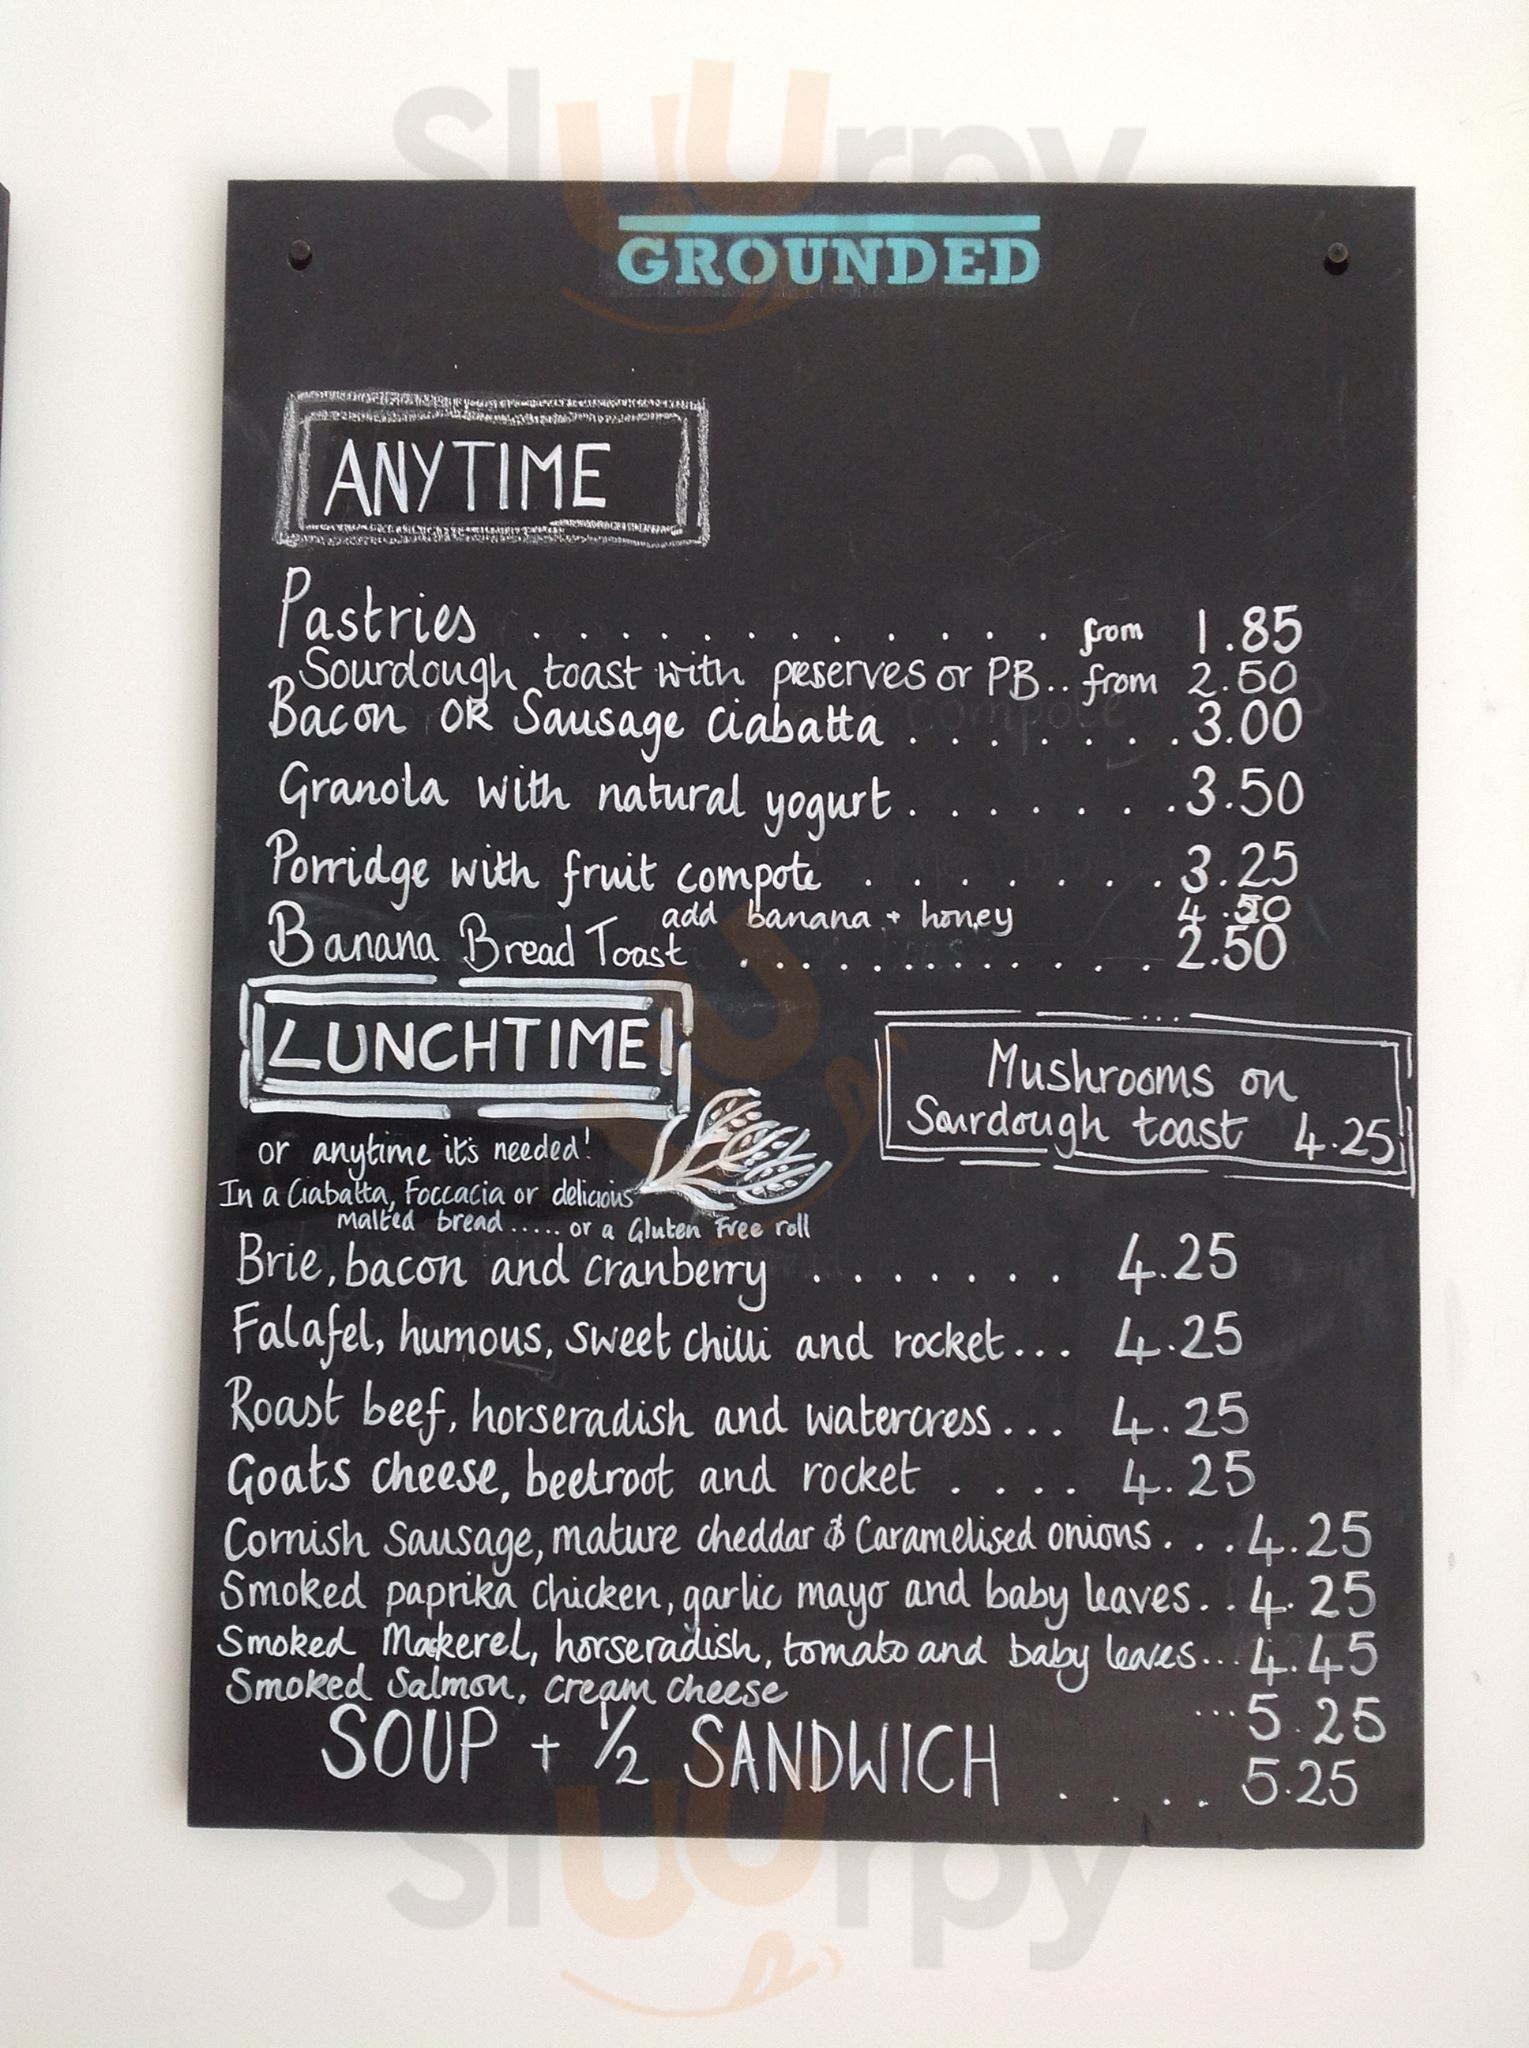 Sluurpy
GROUNDED
ANYTIME
Pastries . . . . . . . . . . . . . from 1.85
Sourdough toast with preserves or PB.. from 2.50
Bacon OR Sausage Ciabatta . . . . . . . 3.00
Granola with natural yogurt . . . . . . . 3.50
Porridge with fruit compote . . . . . . . 3.25
add banana + honey
Banana Bread Toast . . . . . . . . . . . . 2.50
LUNCHTIME!
or anytime it's needed!
In a Ciabatta, Foccacia or delicious
malted bread ..... or a Gluten Free roll
Mushrooms on
Sourdough toast 4.25
Brie, bacon and cranberry . . . . . . . 4.25
Falafel, humous, sweet chilli and rocket... 4.25
Roast beef, horseradish and watercress... 4.25
Goats cheese, beetroot and rocket . . . . 4.25
Cornish Sausage, mature cheddar & Caramelised onions . . . 4.25
Smoked paprika chicken, garlic mayo and baby leaves. . 4.25
Smoked Mackerel, horseradish, tomato and baby leaves... 4.45
Smoked Salmon, cream cheese ... 5.25
SOUP + 1/2 SANDWICH . . . . 5.25
Sluurpy